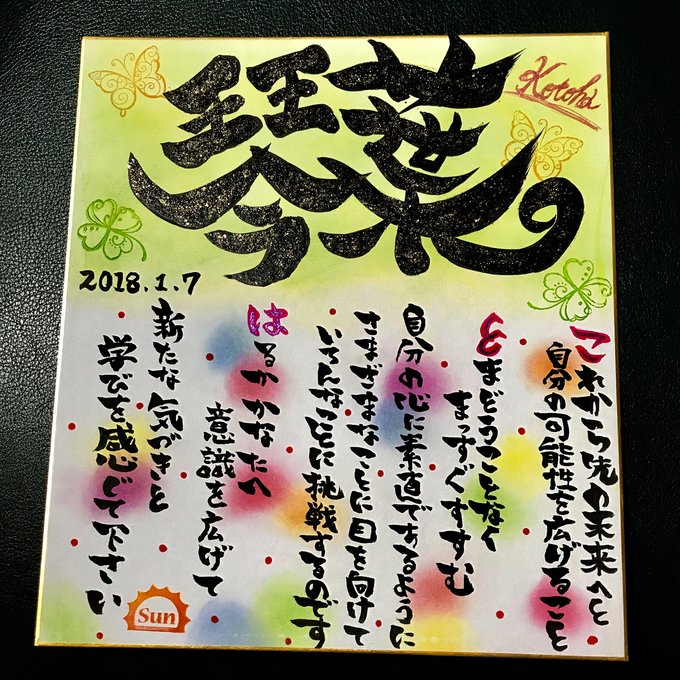 琴葉
Kotoha
これから先の未来へと
自分の可能性を広げること
とまどうことなく
まっすぐすすむ
自分の心に素直であるように
さまざまなことに目を向けて
いろんなことに挑戦するのです
はるかかなたへ
意識を広げて
新たな気づきと
学びを感じて下さい
2018.1.7
Sun